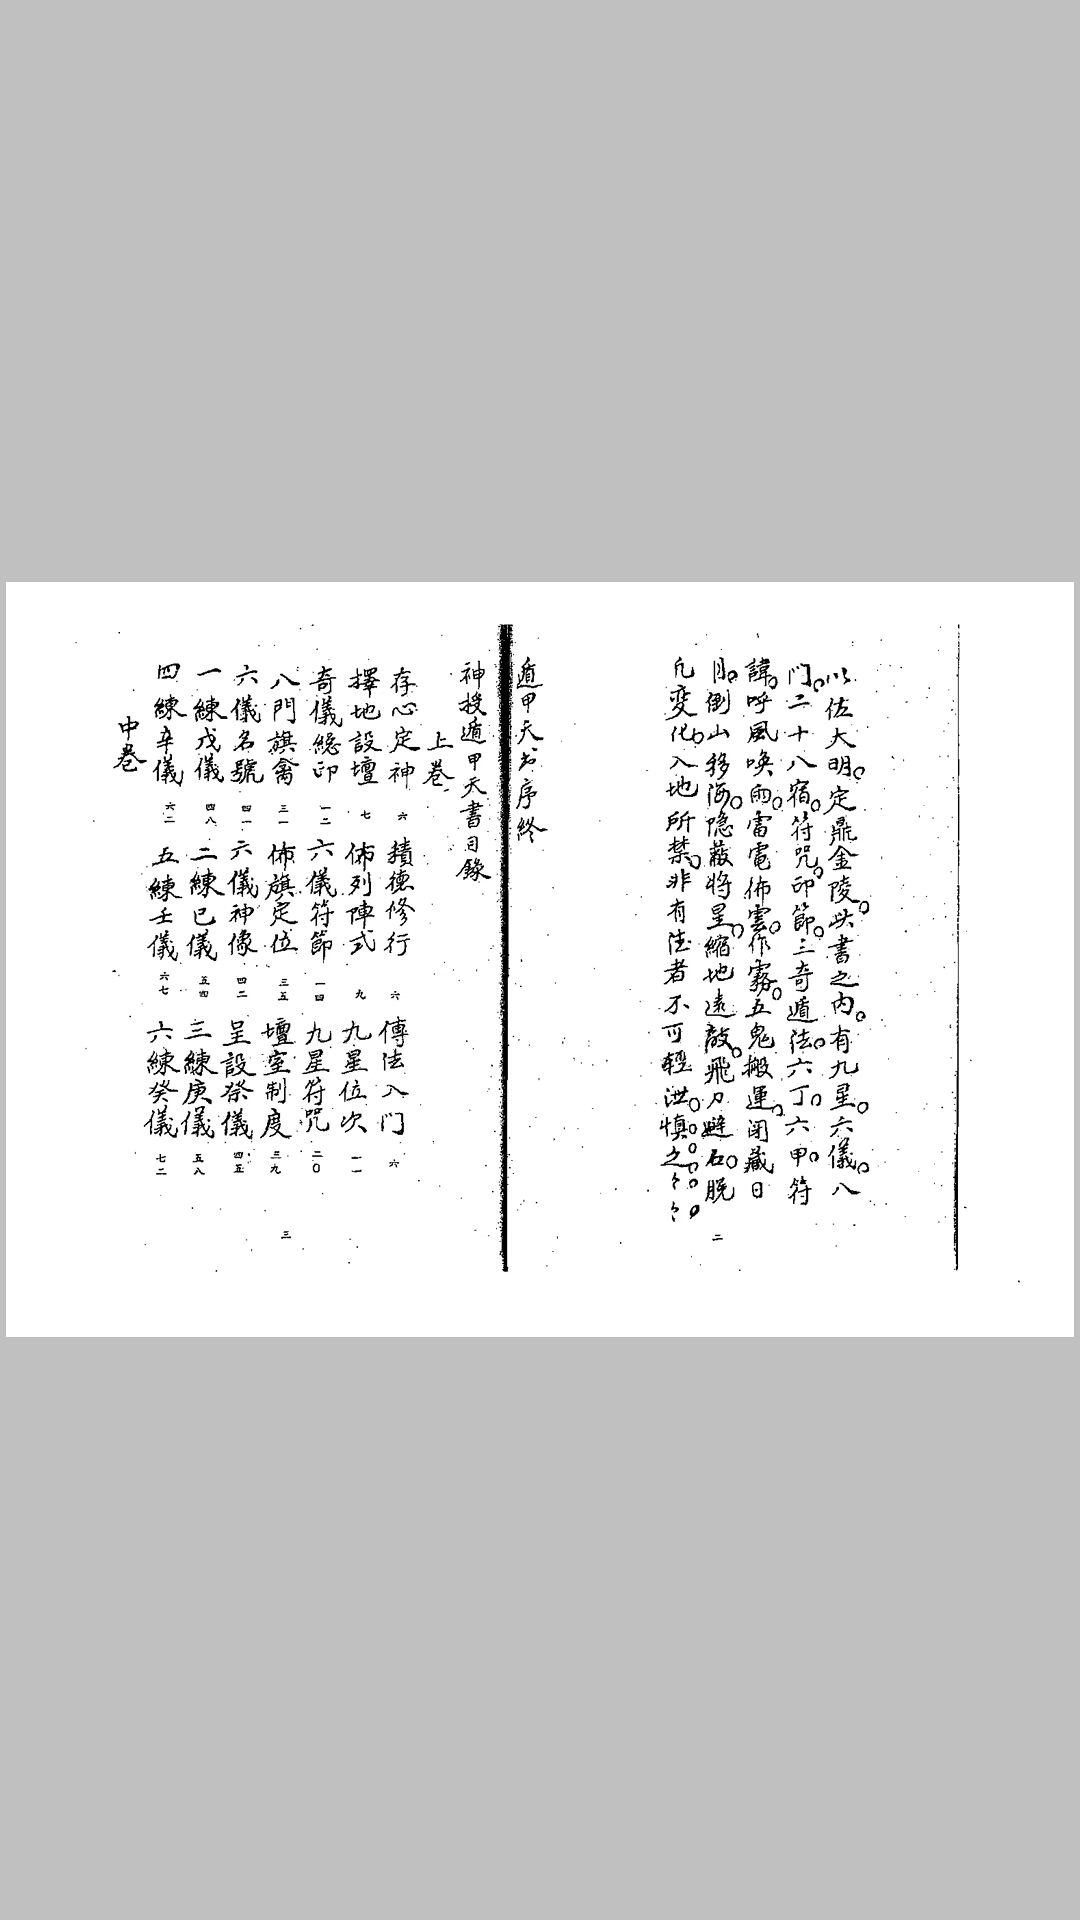 以佐大明。定鼎金陵。此書之內。有九星。六儀。八
門。二十八宿。符咒。印節。三奇遁法。六丁。六甲。符
諱。呼風喚雨。雷電佈雲。作霧。五鬼搬運。閉藏日
月。倒山移海。隐蔽將星。縮地遠敵。飛刀避石。脫
凡變化。入地所禁。非有法者不可輕洩。慎之〻〻
二
遁甲天书序終
神授遁甲天書目錄
上卷
存心定神 六 積德修行 六 傳法入门 六
擇地設壇 七 佈列陣式 九 九星位次 一一
奇儀總印 一二 六儀符節 一四 九星符咒 二〇
八門旗禽 三一 佈旗定位 三五 壇室制度 三九
六儀名號 四一 六儀神像 四二 呈設祭儀 四五
一練戊儀 四八 二練已儀 五四 三練庚儀 五八
四練辛儀 六二 五練壬儀 六七 六練癸儀 七二
中卷
三